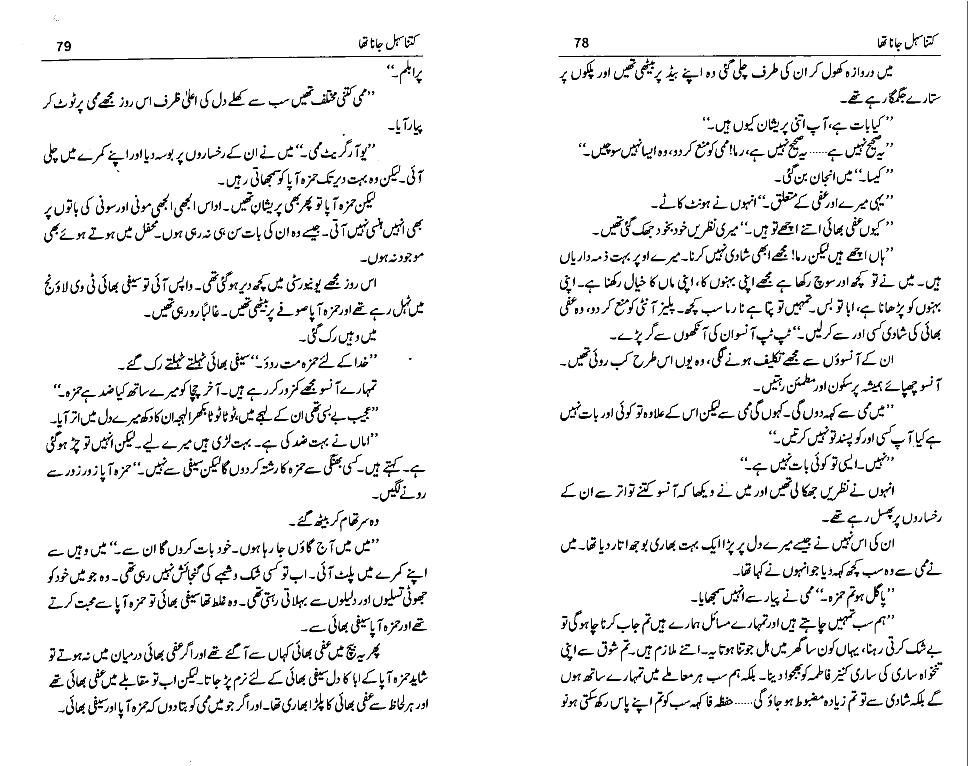 کتنا سہل جانا تھا
78
میں دروازہ کھول کر ان کی طرف چلی گئی وہ اپنے بیڈ پر بیٹھی تھیں اور پلکوں پر
ستارے جگمگا رہے تھے۔
’’کیا بات ہے، آپ اتنی پریشان کیوں ہیں۔‘‘
’’یہ صحیح نہیں ہے...... یہ صحیح نہیں ہے، رما! ممی کو منع کر دو، وہ ایسا نہیں سوچیں۔‘‘
’’کیسا۔‘‘ میں انجان بن گئی۔
’’یہی میرے اور عفی کے متعلق۔‘‘ انہوں نے ہونٹ کاٹے۔
’’کیوں عفی بھائی اتنے اچھے تو ہیں۔‘‘ میری نظریں خود بخود جھک گئی تھیں۔
’’ہاں اچھے ہیں لیکن رما! مجھے ابھی شادی نہیں کرنا۔ میرے اوپر بہت ذمہ داریاں
ہیں۔ میں نے تو کچھ اور سوچ رکھا ہے مجھے اپنی بہنوں کا، اپنی ماں کا خیال رکھنا ہے۔ اپنی
بہنوں کو پڑھانا ہے، ابا تو بس۔ تمہیں تو پتا ہے نا رما سب کچھ۔ پلیز آنٹی کو منع کر دو، وہ عفی
بھائی کی شادی کسی اور سے کر لیں۔‘‘ ٹپ ٹپ آنسو ان کی آنکھوں سے گر پڑے۔
ان کے آنسوؤں سے مجھے تکلیف ہونے لگی، وہ یوں اس طرح کب روئی تھیں۔
آنسو چھپائے ہمیشہ پر سکون اور مطمئن رہتیں۔
’’میں ممی سے کہہ دوں گی۔ کہوں گی ممی سے لیکن اس کے علاوہ تو کوئی اور بات نہیں
ہے کیا آپ کسی اور کو پسند تو نہیں کرتیں۔‘‘
’’نہیں۔ ایسی تو کوئی بات نہیں ہے۔‘‘
انہوں نے نظریں جھکا لی تھیں اور میں نے دیکھا کہ آنسو کتنے تواتر سے ان کے
رخساروں پر پھسل رہے تھے۔
ان کی اس نہیں نے جیسے میرے دل پر پڑا ایک بہت بھاری بوجھ اتار دیا تھا۔ میں
نے ممی سے وہ سب کچھ کہہ دیا جو انہوں نے کہا تھا۔
’’پاگل ہو تم حمزہ۔‘‘ ممی نے پیار سے انہیں سمجھایا۔
’’ہم سب تمہیں چاہتے ہیں اور تمہارے مسائل ہمارے ہیں تم جاب کرنا چاہو گی تو
بے شک کرتی رہنا، یہاں کون سا گھر میں ہل جوتنا ہوتا یہ۔ اتنے ملازم ہیں۔ تم شوق سے اپنی
تنخواہ ساری کی ساری کنیز فاطمہ کو بھجوا دینا۔ بلکہ ہم سب ہر معاملے میں تمہارے ساتھ ہوں
گے بلکہ شادی سے تو تم زیادہ مضبوط ہو جاؤ گی...... حفظہ فاکہہ سب کو تم اپنے پاس رکھ سکتی ہو نو
کتنا سہل جانا تھا
79
پرابلم۔‘‘
’’ممی کتنی مختلف تھیں سب سے کھلے دل کی اعلیٰ ظرف اس روز مجھے ممی پر ٹوٹ کر
پیار آیا۔
’’یو آر گریٹ ممی۔‘‘ میں نے ان کے رخساروں پر بوسہ دیا اور اپنے کمرے میں چلی
آئی۔ لیکن وہ بہت دیر تک حمزہ آپا کو سمجھاتی رہیں۔
لیکن حمزہ آپا تو پھر بھی پریشان تھیں۔ اداس الجھی الجھی مونی اور سونی کی باتوں پر
بھی انہیں ہنسی نہیں آئی۔ جیسے وہ ان کی بات سن ہی نہ رہی ہوں۔ محفل میں ہوتے ہوئے بھی
موجود نہ ہوں۔
اس روز مجھے یونیورسٹی میں کچھ دیر ہو گئی تھی۔ واپس آئی تو سیفی بھائی ٹی وی لاؤنج
میں ٹہل رہے تھے اور حمزہ آپا صوفے پر بیٹھی تھیں۔ غالباً رو رہی تھیں۔
میں وہیں رک گئی۔
’’خدا کے لئے حمزہ مت روؤ۔‘‘ سیفی بھائی ٹہلتے ٹہلتے رک گئے۔
تمہارے آنسو مجھے کمزور کر رہے ہیں۔ آخر چچا کو میرے ساتھ کیا ضد ہے حمزہ۔‘‘
’’عجیب بے بسی تھی ان کے لہجے میں، ٹوٹا ٹوٹا بکھرا لہجہ ان کا دکھ میرے دل میں اتر آیا۔
’’اماں نے بہت ضد کی ہے۔ بہت لڑی ہیں میرے لیے۔ لیکن انہیں تو چڑ ہو گئی
ہے۔ کہتے ہیں۔ کسی بھنگی سے حمزہ کا رشتہ کر دوں گا لیکن سیفی سے نہیں۔‘‘ حمزہ آپا زور زور سے
رونے لگیں۔
وہ سر تھام کر بیٹھ گئے۔
’’میں میں آج گاؤں جا رہا ہوں۔ خود بات کروں گا ان سے۔‘‘ میں وہیں سے
اپنے کمرے میں پلٹ آئی۔ اب تو کسی شک و شبہے کی گنجائش نہیں رہی تھی۔ وہ جو میں خود کو
جھوٹی تسلیوں اور دلیلوں سے بہلاتی رہتی تھی۔ وہ غلط تھا سیفی بھائی تو حمزہ آپا سے محبت کرتے
تھے اور حمزہ آپا سیفی بھائی سے۔
پھر یہ بیچ میں عفی بھائی کہاں سے آ گئے تھے اور اگر عفی بھائی درمیان میں نہ ہوتے تو
شاید حمزہ آپا کے ابا کا دل سیفی بھائی کے لئے نرم پڑ جاتا۔ لیکن اب تو مقابلے میں عفی بھائی تھے
اور ہر لحاظ سے عفی بھائی کا پلڑا بھاری تھا۔ اور اگر جو میں ممی کو بتا دوں کہ حمزہ آپا اور سیفی بھائی۔